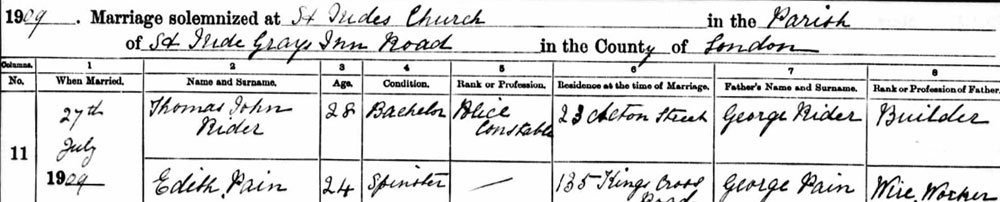 1909. Marriage solemnized at St Judes Church in the Parish
of St Jude Grays Inn Road in the County of London
Columns. 1 2 3 4 5 6 7 8
No. When Married. Name and Surname. Age. Condition. Rank or Profession. Residence at the time of Marriage. Father's Name and Surname. Rank or Profession of Father
27th Thomas John 28 Bachelor Police 23 Acton Street George Rider Builder
Rider Constable
11 July
1909 Edith Pain 24 Spinster — 135 Kings Cross George Pain Wire Worker
Road